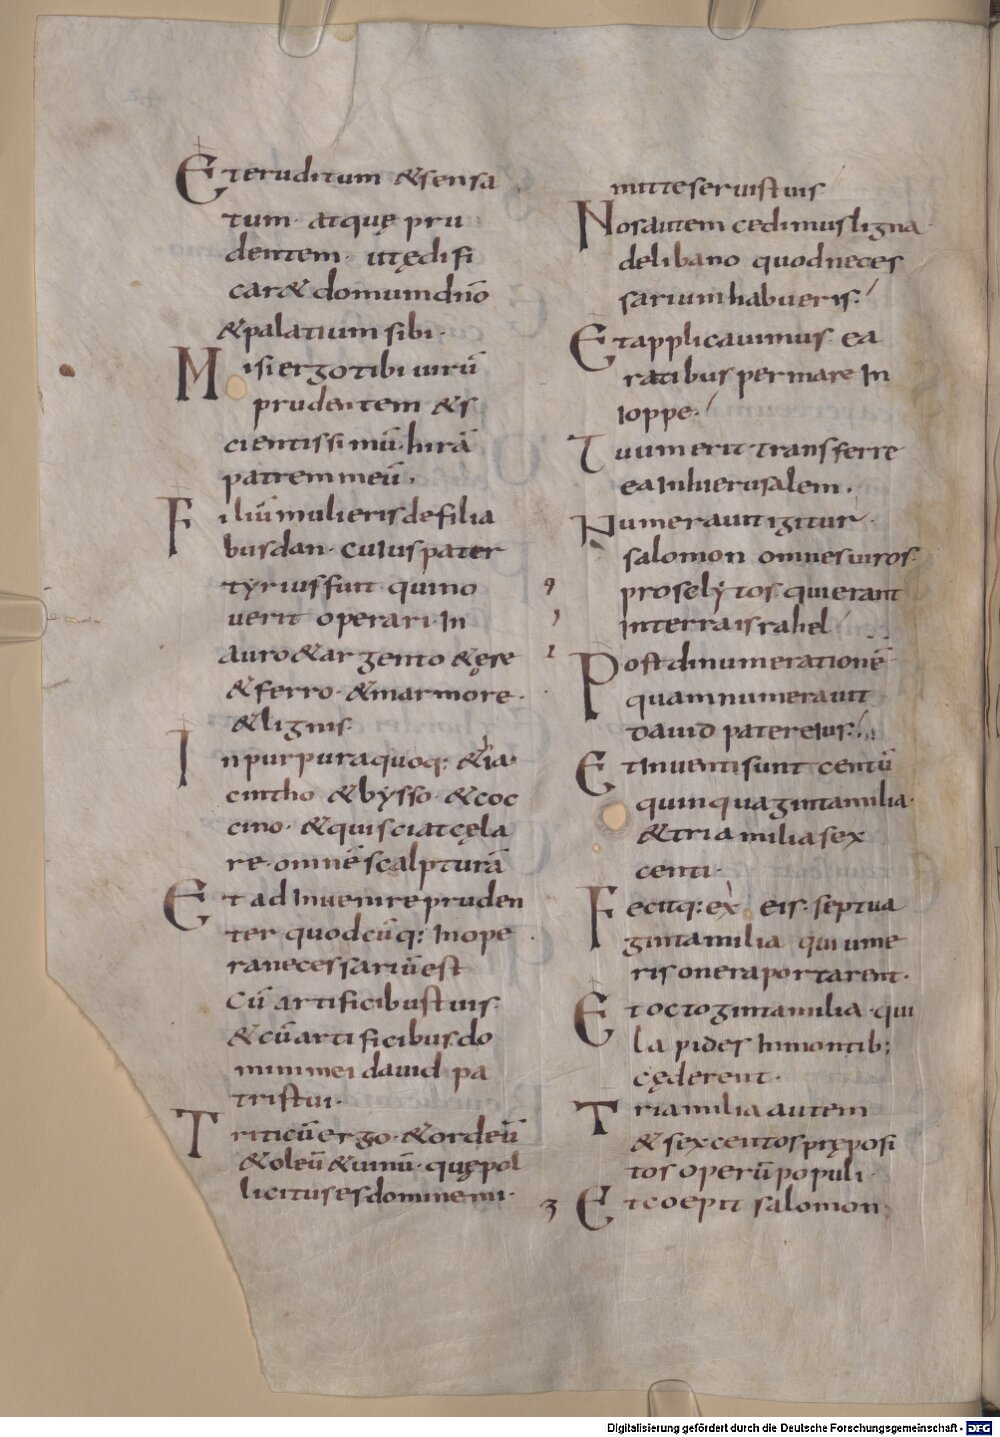 Et eruditum & sensa
tum · atquę pru
dentem · ut ędifi
car& domum dn̄o
& palatium sibi ·
Misi ergo tibi uirū
prudentem & s
cientissimū · hirā
patrem meū ·
Filiū mulieris de filia
bus dan · cuius pater
tyrius fuit · qui no
uerit operari · In
auro & argento & ęre
& ferro · & marmore ·
& lignis ·
In purpura quoq: & ia
cintho & bysso · & coc
cino · & qui sciat cęla
re · omnē scalpturā
Et ad Inuenire pruden
ter quodcūq: In ope
ra necessariū est
Cū artificibus tuis ·
& cū artificibus do
mini mei dauid pa
tris tui ·
Triticū ergo · & ordeū
& oleū & uinū · quę pol
licitus es domine mi ·
mitte seruis tuis
Nos autem cedimus ligna
de libano quod neces
sarium habueris
Et applicauimus ea
ratibus per mare In
Ioppe ·
Tuum erit transferre
ea In hierusalem ·
Numerauit igitur ·
salomon omnes uiros ·
proselytos qui erant
In terra israhel
9
Post dinumerationē
quam numerauit
Dauid pater eius
Et Inuenti sunt centū
quinquaginta milia ·
& tria milia sex
centi ·
Fecitq: ex eis · septua
ginta milia qui ume
ris onera portarent ·
Et octoginta milia · qui
lapides In montib;
cęderent ·
Tria milia autem
& sexcentos pręposi
tos operū populi ·
3
Et coepit salomon
Digitalisierung gefördert durch die Deutsche Forschungsgemeinschaft - DFG